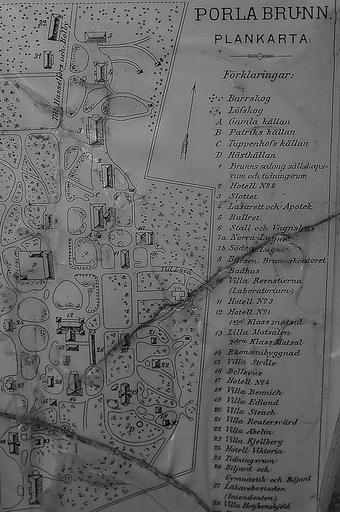 PORLA BRUNN.
PLANKARTA.
Förklaringar:
Barrskog
Löfskog
A Gamla källan
B Patriks källan
C Tuppenhofs källan
D Hästkällan
1 Brunns-salong, sällskaps-
rum och tidningsrum
2 Hotell No 2
3 Slottet
4 Lasarett och Apotek
5 Bullret
6 Stall och Vagnshus
7a Norra Lugnet
7b Södra Lugnet
8 Börsen. Brunnskontoret
9 Badhus
10 Villa Reenstierna
(Laboratorium)
11 Hotell No 3
12 Hotell No 1
Klass matsal
13 Lilla Matsalen
Klass Matsal
14 Ekonomibyggnad
15 Villa Stråle
16 Bellevue
17 Hotell No 4
18 Villa Bennich
19 Villa Edlund
20 Villa Stench
21 Villa Reutersvärd
22 Villa Abelin
23 Villa Kjellberg
24 Hotell Viktoria
25 Tidningsrum
26 Biljard och
Gymnastik och Biljard
27 Läkarebostaden
(Intendenten)
28 Villa Heijkenskjöld